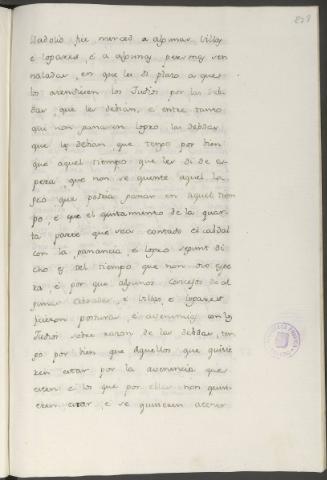 lladolid fiz merced a algunas villas
e logares, e a algunas personas sen
naladas, en que les di plazo a que
los atendiesen los Judios por las deb
das, que les debian, e entre tanto
que non ganasen logro, las debdas
que les debian que tengo por bien
que aquel tiempo que les di de es-
pera, que non se cuente aquel lo-
gro que podria ganar en aquel tiem
po, e que el quitamiento de la quar-
ta parte que sea contado el cabdal
con la ganancia, e logro segunt di
cho es del tiempo que non ovo espe
ra, e por que algunos concejos de al
gunas cibdades, e villas, e logares
ficieron posturas, e avenencias con los
Judios sobre razon de las debdas, ten
go por bien que aquellos que quisie
ren estar por la avenencia que
esten e los que por ellas non quisi-
eren estar, e se quisieren acoger